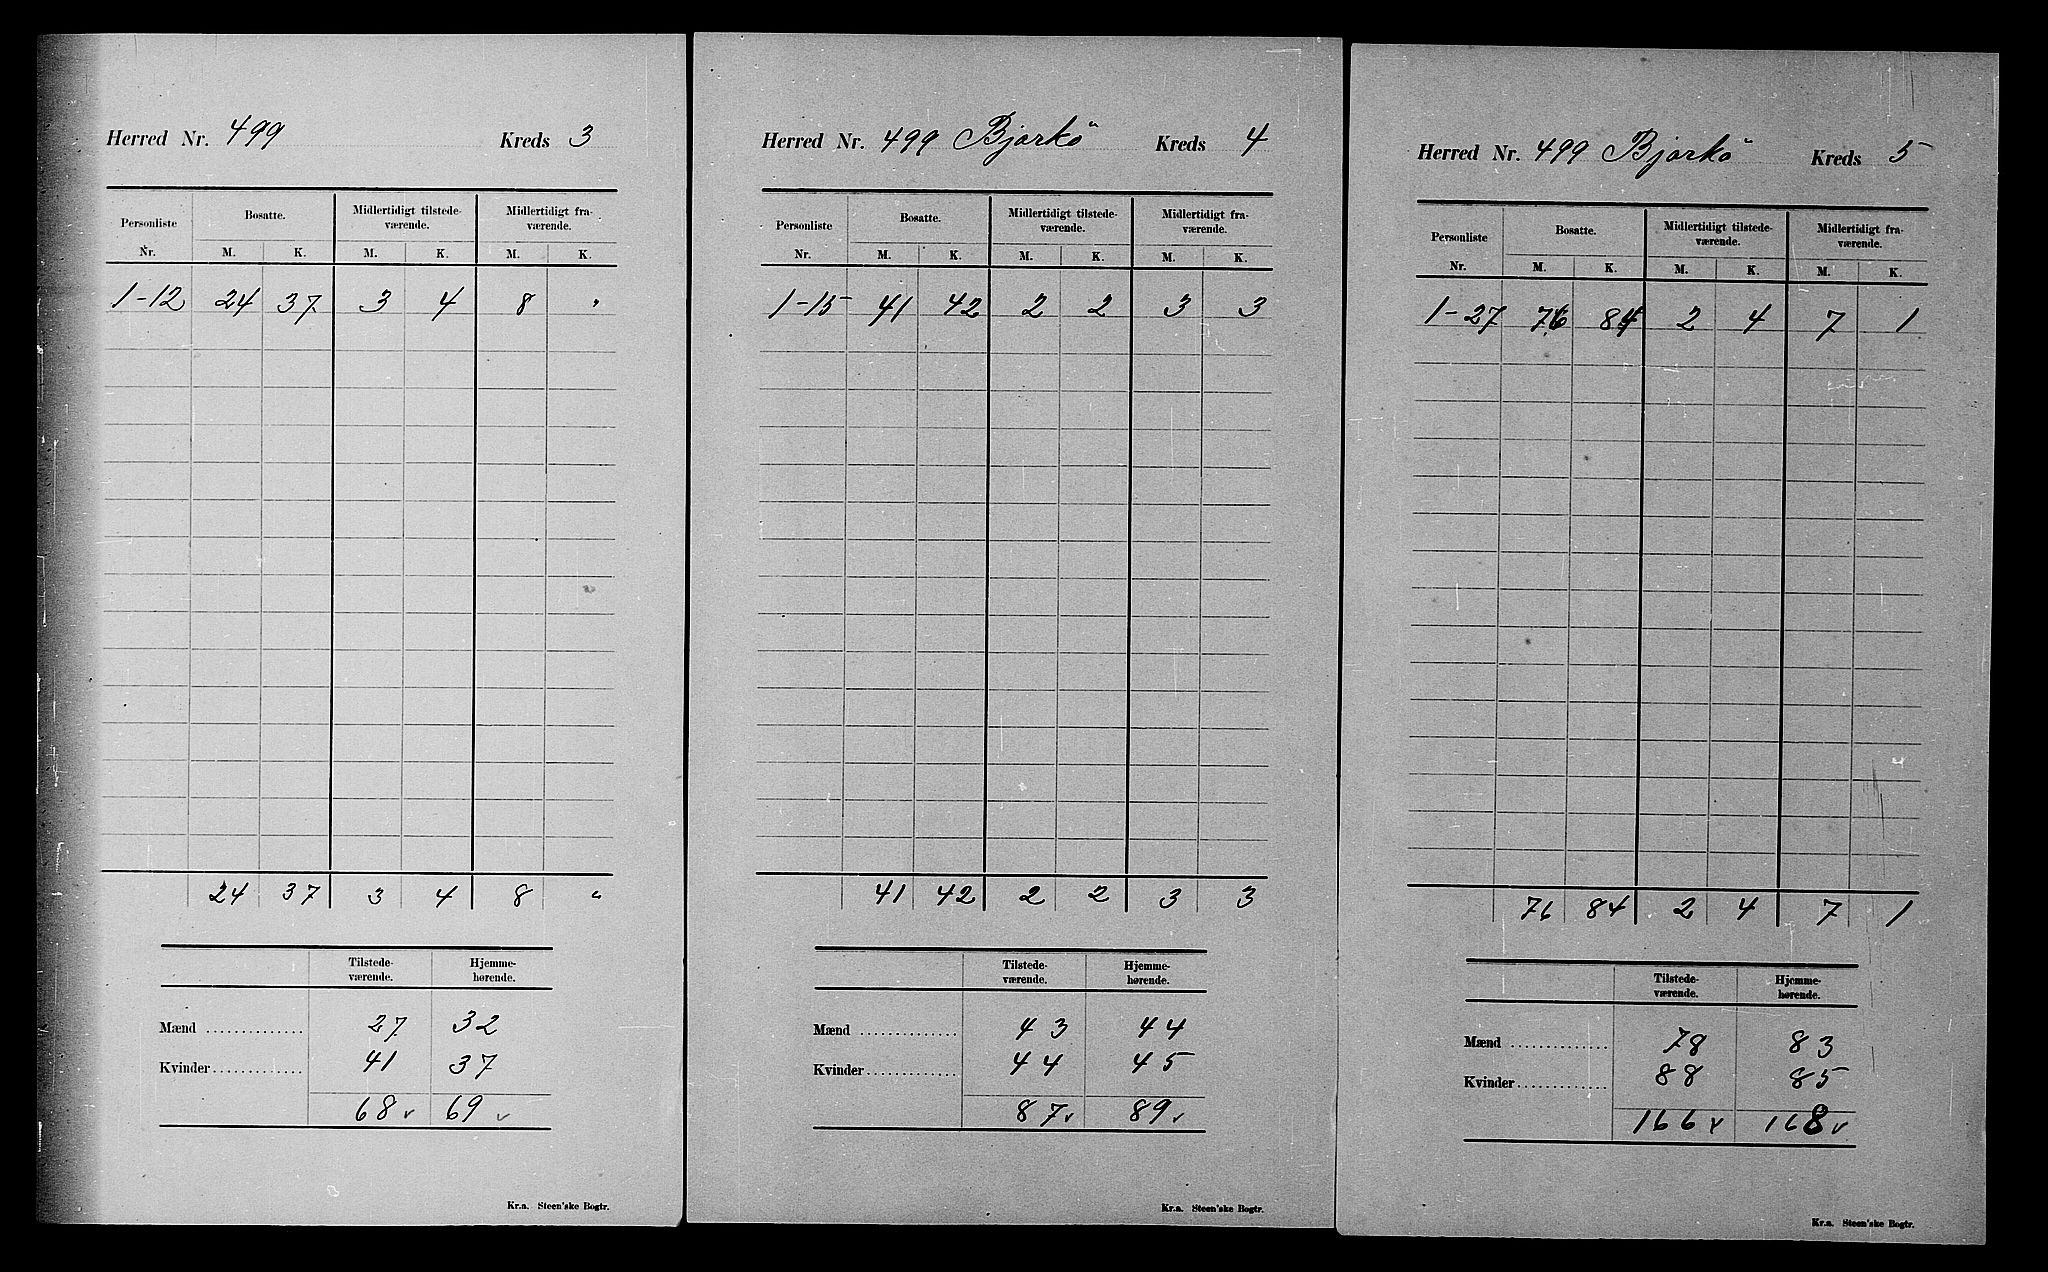 Herred Nr. 499 Kreds 3
Personliste Bosatte. Midlertidigt tilstede- Midlertidigt fra-
værende. værende.
Nr. M. K. M. K. M. K.
1-12 24 37 3 4 8 "
24 37 3 4 8 "
Tilstede- Hjemme-
værende. hørende.
Mænd 27 32
Kvinder 41 37
68 v 69 v
Kr.a. Steen'ske Bogtr.
Herred Nr. 499 Bjarkö Kreds 4
Personliste Bosatte. Midlertidigt tilstede- Midlertidigt fra-
værende. værende.
Nr. M. K. M. K. M. K.
1-15 41 42 2 2 3 3
41 42 2 2 3 3
Tilstede- Hjemme-
værende. hørende.
Mænd 43 44
Kvinder 44 45
87 v 89 v
Kr.a. Steen'ske Bogtr.
Herred Nr. 499 Bjarkö Kreds 5
Personliste Bosatte. Midlertidigt tilstede- Midlertidigt fra-
værende. værende.
Nr. M. K. M. K. M. K.
1-27 76 84 2 4 7 1
76 84 2 4 7 1
Tilstede- Hjemme-
værende. hørende.
Mænd 78 83
Kvinder 88 85
166 v 168 v
Kr.a. Steen'ske Bogtr.